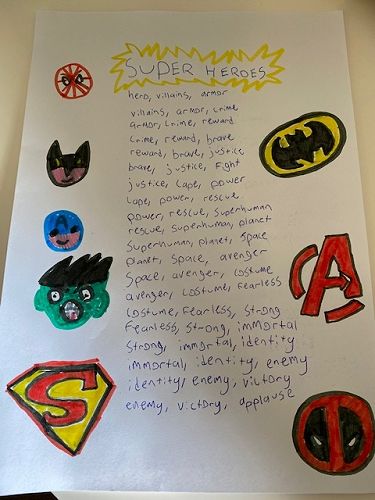 SUPER HEROES
hero, villains, armor
villains, armor, crime
armor, crime, reward
crime, reward, brave
reward, brave, justice
brave, justice, fight
justice, cape, power
cape, power, rescue
power, rescue, superhuman
rescue, superhuman, planet
superhuman, planet, space
planet, space, avenger
space, avenger, costume
avenger, costume, fearless
costume, fearless, strong
fearless, strong, immortal
strong, immortal, identity
immortal, identity, enemy
identity, enemy, victory
enemy, victory, applause
A
A
S